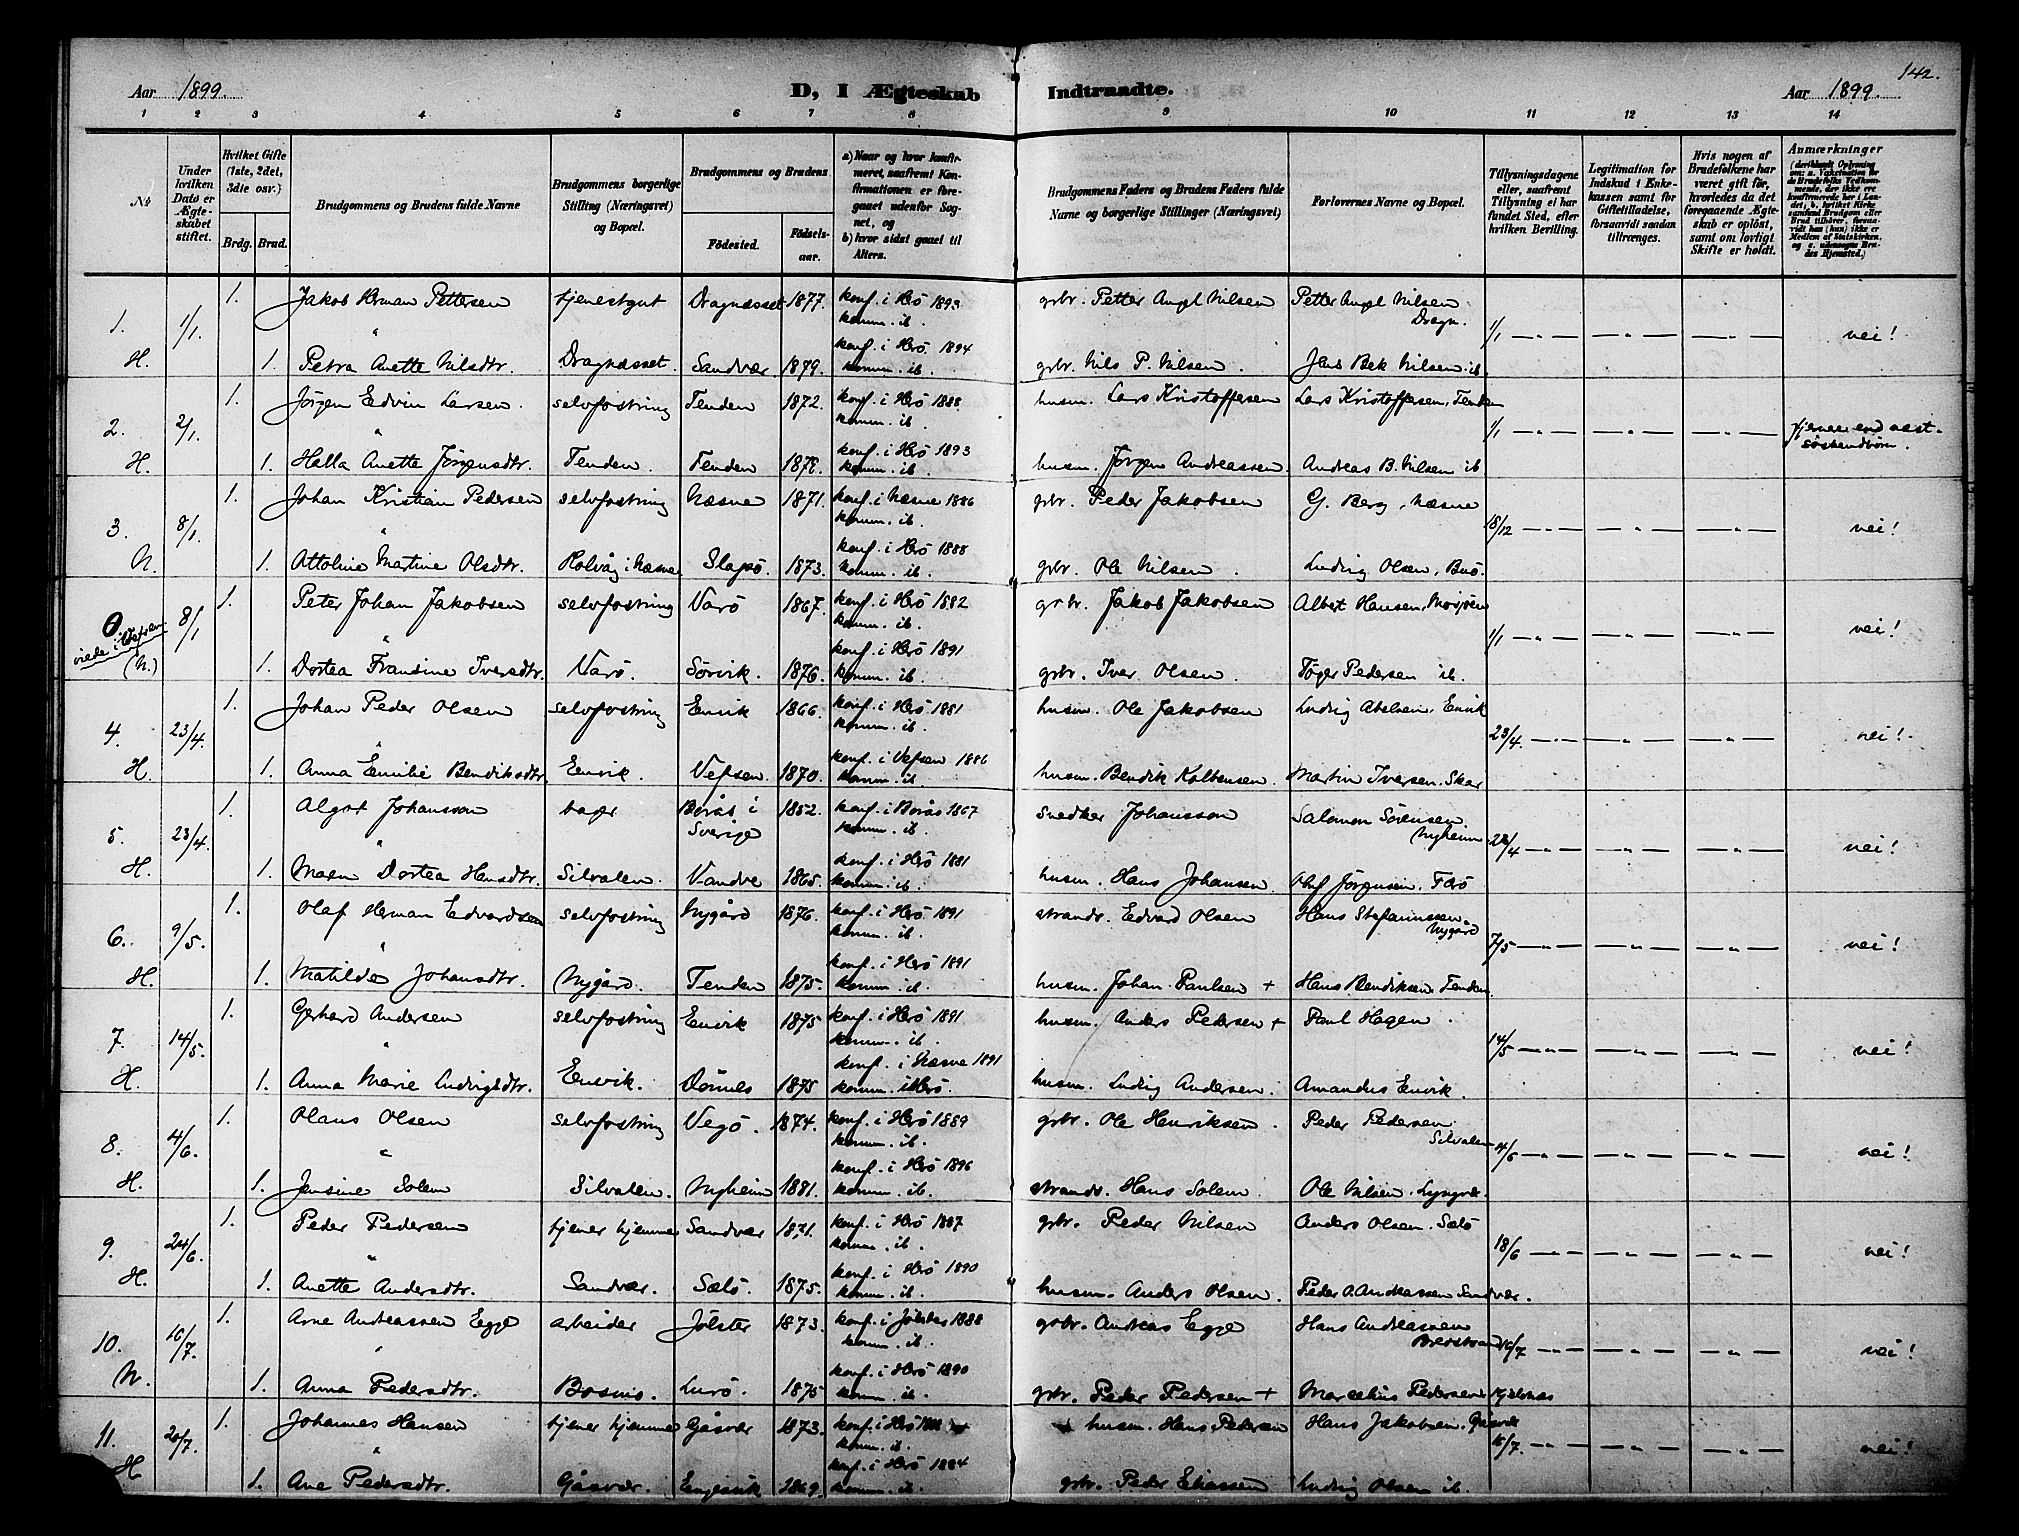 142.
Aar 1899. D, I Ægteskab Indtraadte. Aar 1899.
1 2 3 4 5 6 7 8 9 10 11 12 13 14
No
Under hvilken Dato er Ægteskabet stiftet.
Hvilket Gifte (1ste, 2det, 3die osv.)
Brdg. Brud.
Brudgommens og Brudens fulde Navne
Brudgommens borgerlige Stilling (Næringsvei) og Bopæl.
Brudgommens og Brudens
Födested. Födselsaar.
a) Naar og hvor konfirmeret, saafremt Konfirmationen er foregaaet udenfor Sognet, og
b) hvor sidst gaaet til Alters.
Brudgommens Faders og Brudens Faders fulde Navne og borgerlige Stillinger (Næringsvei)
Forlovernes Navne og Bopæl.
Tillysningsdagene eller, saafremt Tillysning ei har fundet Sted, efter hvilken Bevilling.
Legitimation for Indskud i Enkekassen samt for Giftetilladelse, forsaavidt saadan tiltrænges.
Hvis nogen af Brudefolkene har været gift før, hvorledes da det foregaaende Ægteskab er oplöst, samt om lovligt Skifte er holdt.
Anmærkninger
1. 1/1 1. Jakob Herman Pettersen tjenestgut Dragnæsset 1877. konf. i Herö 1893 komm. ib. grbr. Petter Angel Nilsen Petter Angel Nilsen Dragn. 1/1 nei!
H. 1. Petra Anette Nilsdtr. Dragnæsset Sandvær 1879. konf. i Herö 1894 komm. ib. grbr. Nils P. Nilsen. Jens Bek Nilsen ib.
2. 2/1. 1. Jörgen Edvin Larsen. selvfostring Tenden 1872. konf. i Herö 1888. komm. ib. husm. Lars Kristoffersen Lars Kristoffersen, Tenden 1/1 fjernere end næstsöskendbörn.
H. 1. Hella Anette Jörgensdtr. Tenden. Tenden konf. i Herö 1893 komm. ib. husm. Jörgen Andreassen Andreas B. Nilsen ib
3. 8/1. 1. Johan Kristian Pedersen selvfostring Næsne 1871. konf. i Næsne 1886 komm. ib. grbr. Peder Jakobsen G. Berg, Næsne 18/12 nei!
N. 1. Attoline Martine Olsdtr. Holvåg i Næsne Slapö. 1873. konf. i Herö 1888 komm. ib. grbr. Ole Nilsen. Ludvig Olsen, Buö.
0 viede i Vefsen (N.) 8/1 1. Peter Johan Jakobsen selvfostring Varö 1867. konf. i Herö 1882 komm. ib. grbr. Jakob Jakobsen Albert Hansen, Mosjöen 1/1 nei!
1. Dortea Fransine Iversdtr. Varö. Sörvik. 1876. konf. i Herö 1891 komm. ib. grbr. Iver Olsen. Töger Pedersen ib.
4. 23/4. 1. Johan Peder Olsen selvfostring Envik 1866. konf. i Herö 1881 komm. ib. husm. Ole Jakobsen Ludvig Abelsen, Envik 23/4. nei!
H. 1. Anna Emilie Bendiksdtr. Envik. Vefsen. 1870. konf. i Vefsen 1886 komm. ib. husm. Bendik Kolbensen Martin Iversen. Skar
5. 23/4. 1. Algot Johansson bager Borås i Sverige 1852. konf. i Borås 1867 komm. ib. Snedker Johansson Salamon Sörensen Nyheim 23/4 nei!
H. 1. Maren Dortea Hansdtr. Silvalen. Vandve 1865. konf. i Herö 1881 komm. ib. husm. Hans Johansen. Oluf Jörgensen. Færö
6. 9/5. 1. Olaf Herman Edvardsen selvfostring Nygård 1876. konf. i Herö 1891 komm. ib. strands. Edvard Olsen Hans Stefanussen Nygård 7/5 nei!
H. 1. Matilde Johansdtr. Nygård. Tenden 1875. konf. i Herö 1891 komm. ib. husm. Johan Paulsen + Hans Bendiksen. Tenden.
7. 14/5. 1. Gerhard Andersen selvfostring Envik 1875 konf. i Herö 1891 komm. ib. husm. Anders Pedersen + Paul Hagen. 14/5 nei!
H. 1. Anna Marie Ludvigsdtr. Envik. Dönnes 1875 konf. i Næsne 1891 komm. i Herö. husm. Ludvig Andersen. Amandus Envik.
8. 4/6. 1. Olaus Olsen selvfostring Vegö. 1874. konf. i Herö 1889 komm. ib. grbr. Ole Henriksen. Peder Pedersen. Silvalen 4/6 nei!
H. 1. Jensine Solem Silvalen. Nyheim 1881. konf. i Herö 1896 komm. ib. strands. Hans Solem. Ole Nilsen. Lyngvær.
9. 24/6. 1. Peder Pedersen tjener hjemme Sandvær 1871. konf. i Herö 1887 komm. ib. grbr. Peder Nilsen Anders Olsen. Salö 18/6 nei!
H. 1. Anette Andersdtr. Sandvær. Salö. 1875. konf. i Herö 1890 komm. ib. husm. Anders Olsen. Peder O. Andreassen Sandvær.
10. 16/7. 1. Arne Andreassen Egge arbeider Jölster 1873. konf. i Jölster 1888 komm. ib. grbr. Andreas Egge Hans Andreassen Bredstrand 16/7 nei!
N. 1. Anna Pedersdtr. Lurö. 1875 konf. i Herö 1890 komm. ib. grbr. Peder Pedersen + Marcelius Pedersen
11. 20/7. 1. Johannes Hansen tjener hjemme Gåsvær 1873. konf. i Herö komm. ib. husm. Hans Pedersen Hans Jakobsen. Gåsvær 16/7. nei!
H 1. Ane Pedersdtr. Gåsvær. 1869. konf. i Herö 1884 komm. ib. grbr. Peder Eliassen Ludvig Olsen ib.